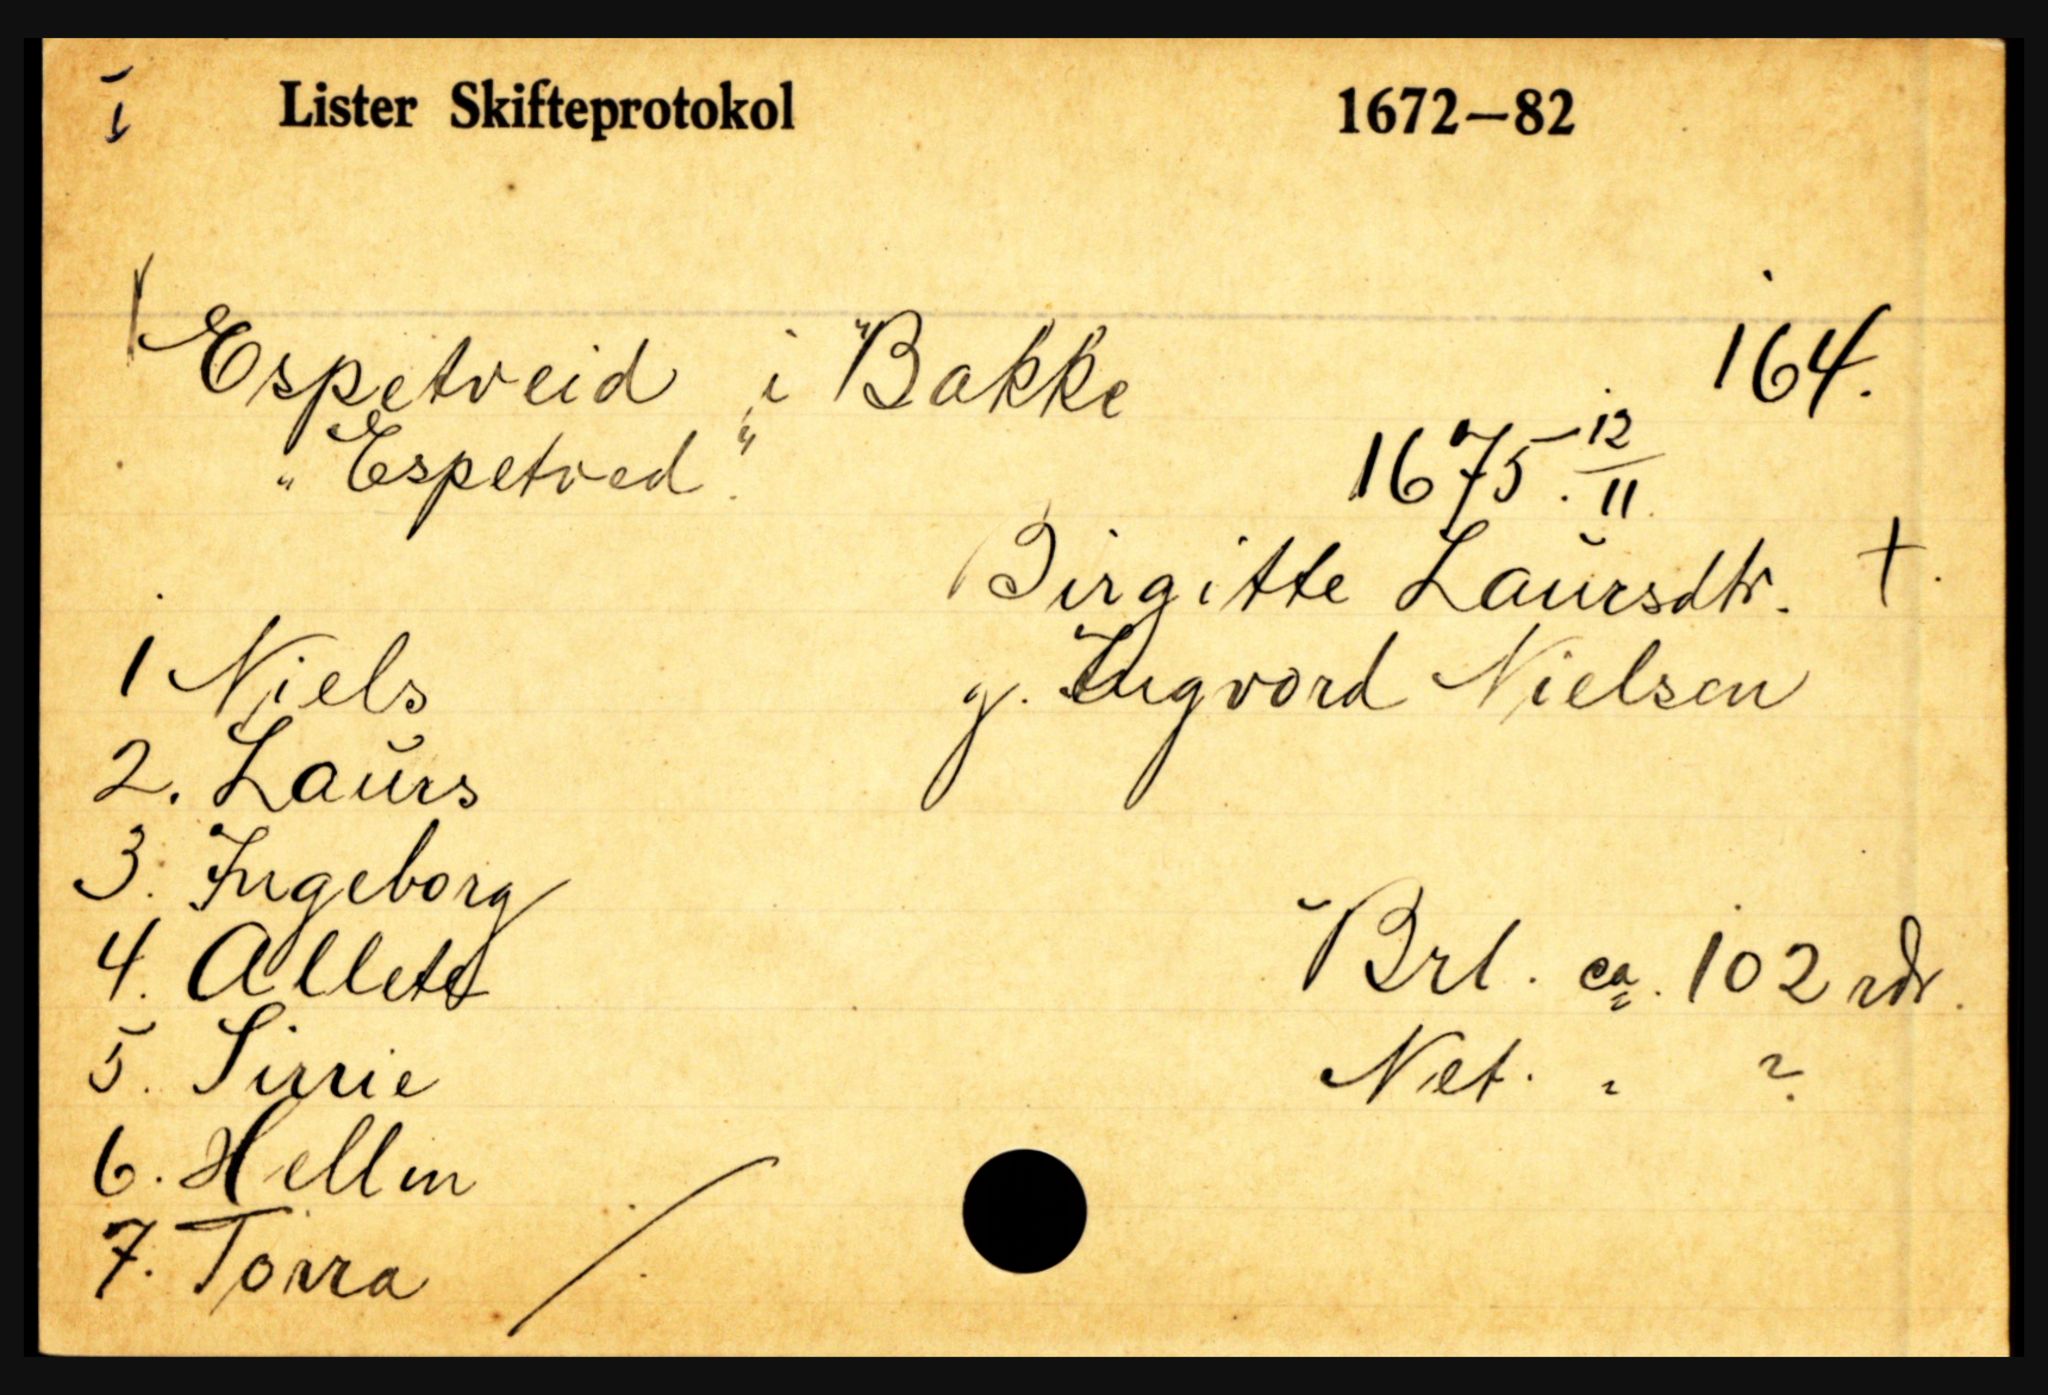 I Lister Skifteprotokol 1672–82
Espetveid i Bakke 164.
„Espetved" 1675 12/11
Birgitte Laursdtr. †.
1 Niels g. Ingvord Nielsen
2. Laurs
3. Ingeborg
4. Allete Brl. ca. 102 rdr.
5. Sirrie Net. " ?
6. Hellin
7. Torra